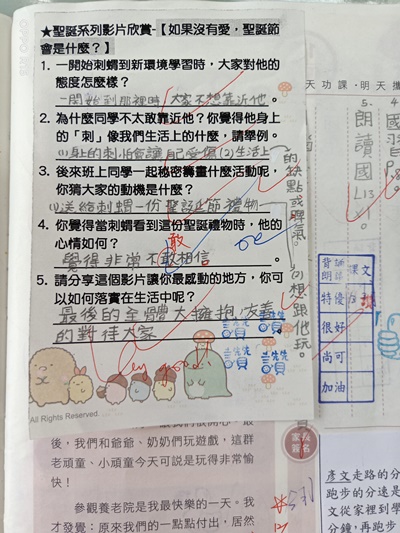 ★聖誕系列影片欣賞-【如果沒有愛，聖誕節
會是什麼？】
1. 一開始刺蝟到新環境學習時，大家對他的
態度怎麼樣？
一開始到那裡時，大家不想靠近他。
2. 為什麼同學不太敢靠近他？你覺得他身上
的「刺」像我們生活上的什麼，請舉例。
(1)身上的刺怕會讓自己受傷(2)生活上
的缺點或脾氣。
3. 後來班上同學一起秘密籌畫什麼活動呢，
你猜大家的動機是什麼？
(1)送給刺蝟一份聖誕節禮物
(2)想跟他玩。
4. 你覺得當刺蝟看到這份聖誕禮物時，他的
心情如何？
敢
覺得非常不敢相信。
5. 請分享這個影片讓你最感動的地方，你可
以如何落實在生活中呢？
最後的全體大擁抱，友善
的對待大家
Very good!
All Rights Reserved.
天功課·明天攜
5.朗讀國L13
背誦 課文
特優
很好
尚可
加油
後，我們和爺爺、奶奶們玩遊戲，這群
老頑童、小頑童今天可說是玩得非常愉
快！
參觀養老院是我最快樂的一天。我
才發覺：原來我們的一點點付出，居然
彥文走路的分
跑步的分速是
文從家裡到學
分鐘，再跑步